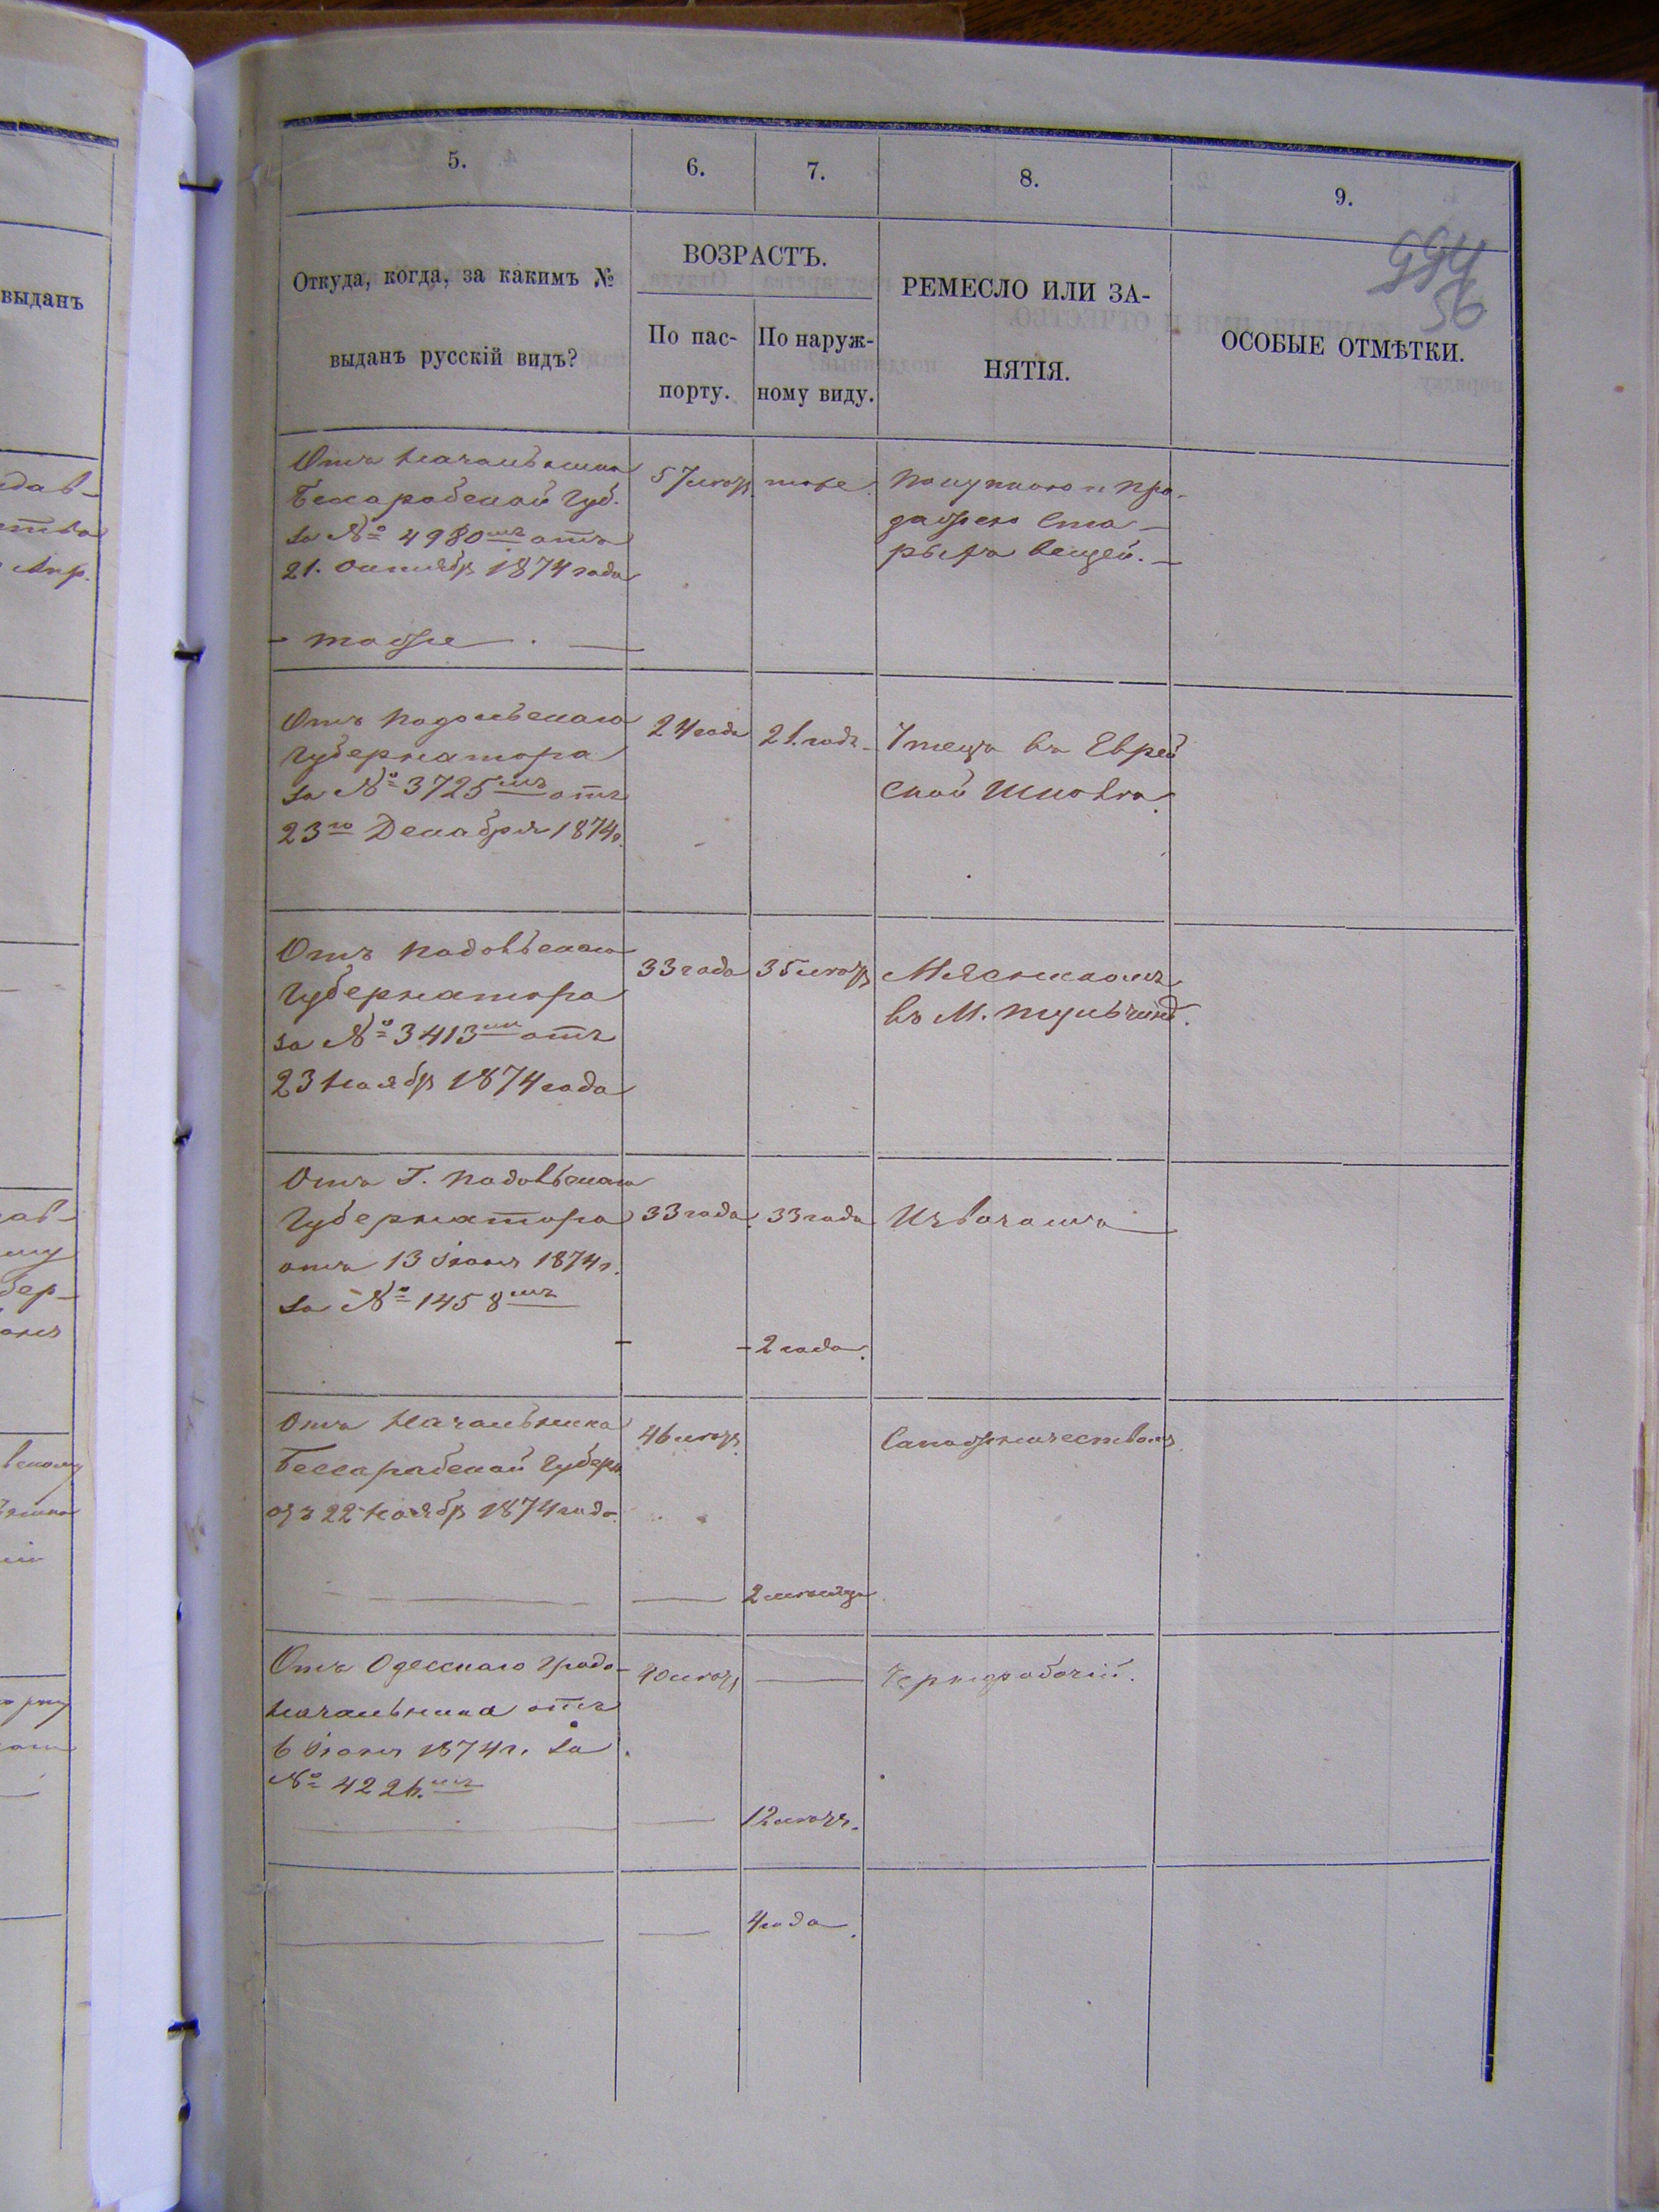 5.
6.
7.
8.
9.
994
56
Откуда, когда, за какимъ №
выданъ русскій видъ?
ВОЗРАСТЪ.
По пас-
порту.
По наруж-
ному виду.
РЕМЕСЛО ИЛИ ЗА-
НЯТІЯ.
ОСОБЫЕ ОТМѢТКИ.
выданъ
Отъ Начальника
Бессарабской Губ.
за № 4980мъ отъ
21. Октября 1874 года
57 лѣтъ
тоже.
Покупкою и про-
дажею ста-
рыхъ вещей.
тоже
Отъ Подольскаго
Губернатора
за № 3725мъ отъ
23го Декабря 1874г.
24 года
21. годъ
Чтецъ въ Еврей
ской Школѣ.
Отъ Подольскаго
Губернатора
за № 3413мъ отъ
23 Ноября 1874 года
33 года
35 лѣтъ
Мясникомъ
въ М. Тульчинѣ.
Отъ Г. Подольскаго
Губернатора
отъ 13 Іюня 1874г.
за № 1458мъ
33 года
33 года
Извощикъ
2 года.
Отъ Начальника
Бессарабской Губерн
отъ 22 Ноября 1874 года.
46 лѣтъ
Сапожничествомъ
2 мѣсяца
Отъ Одесскаго Градо-
начальника отъ
6 Іюня 1874г. за
№ 4226.мъ
40 лѣтъ
Чернорабочій.
12 лѣтъ.
4 года.